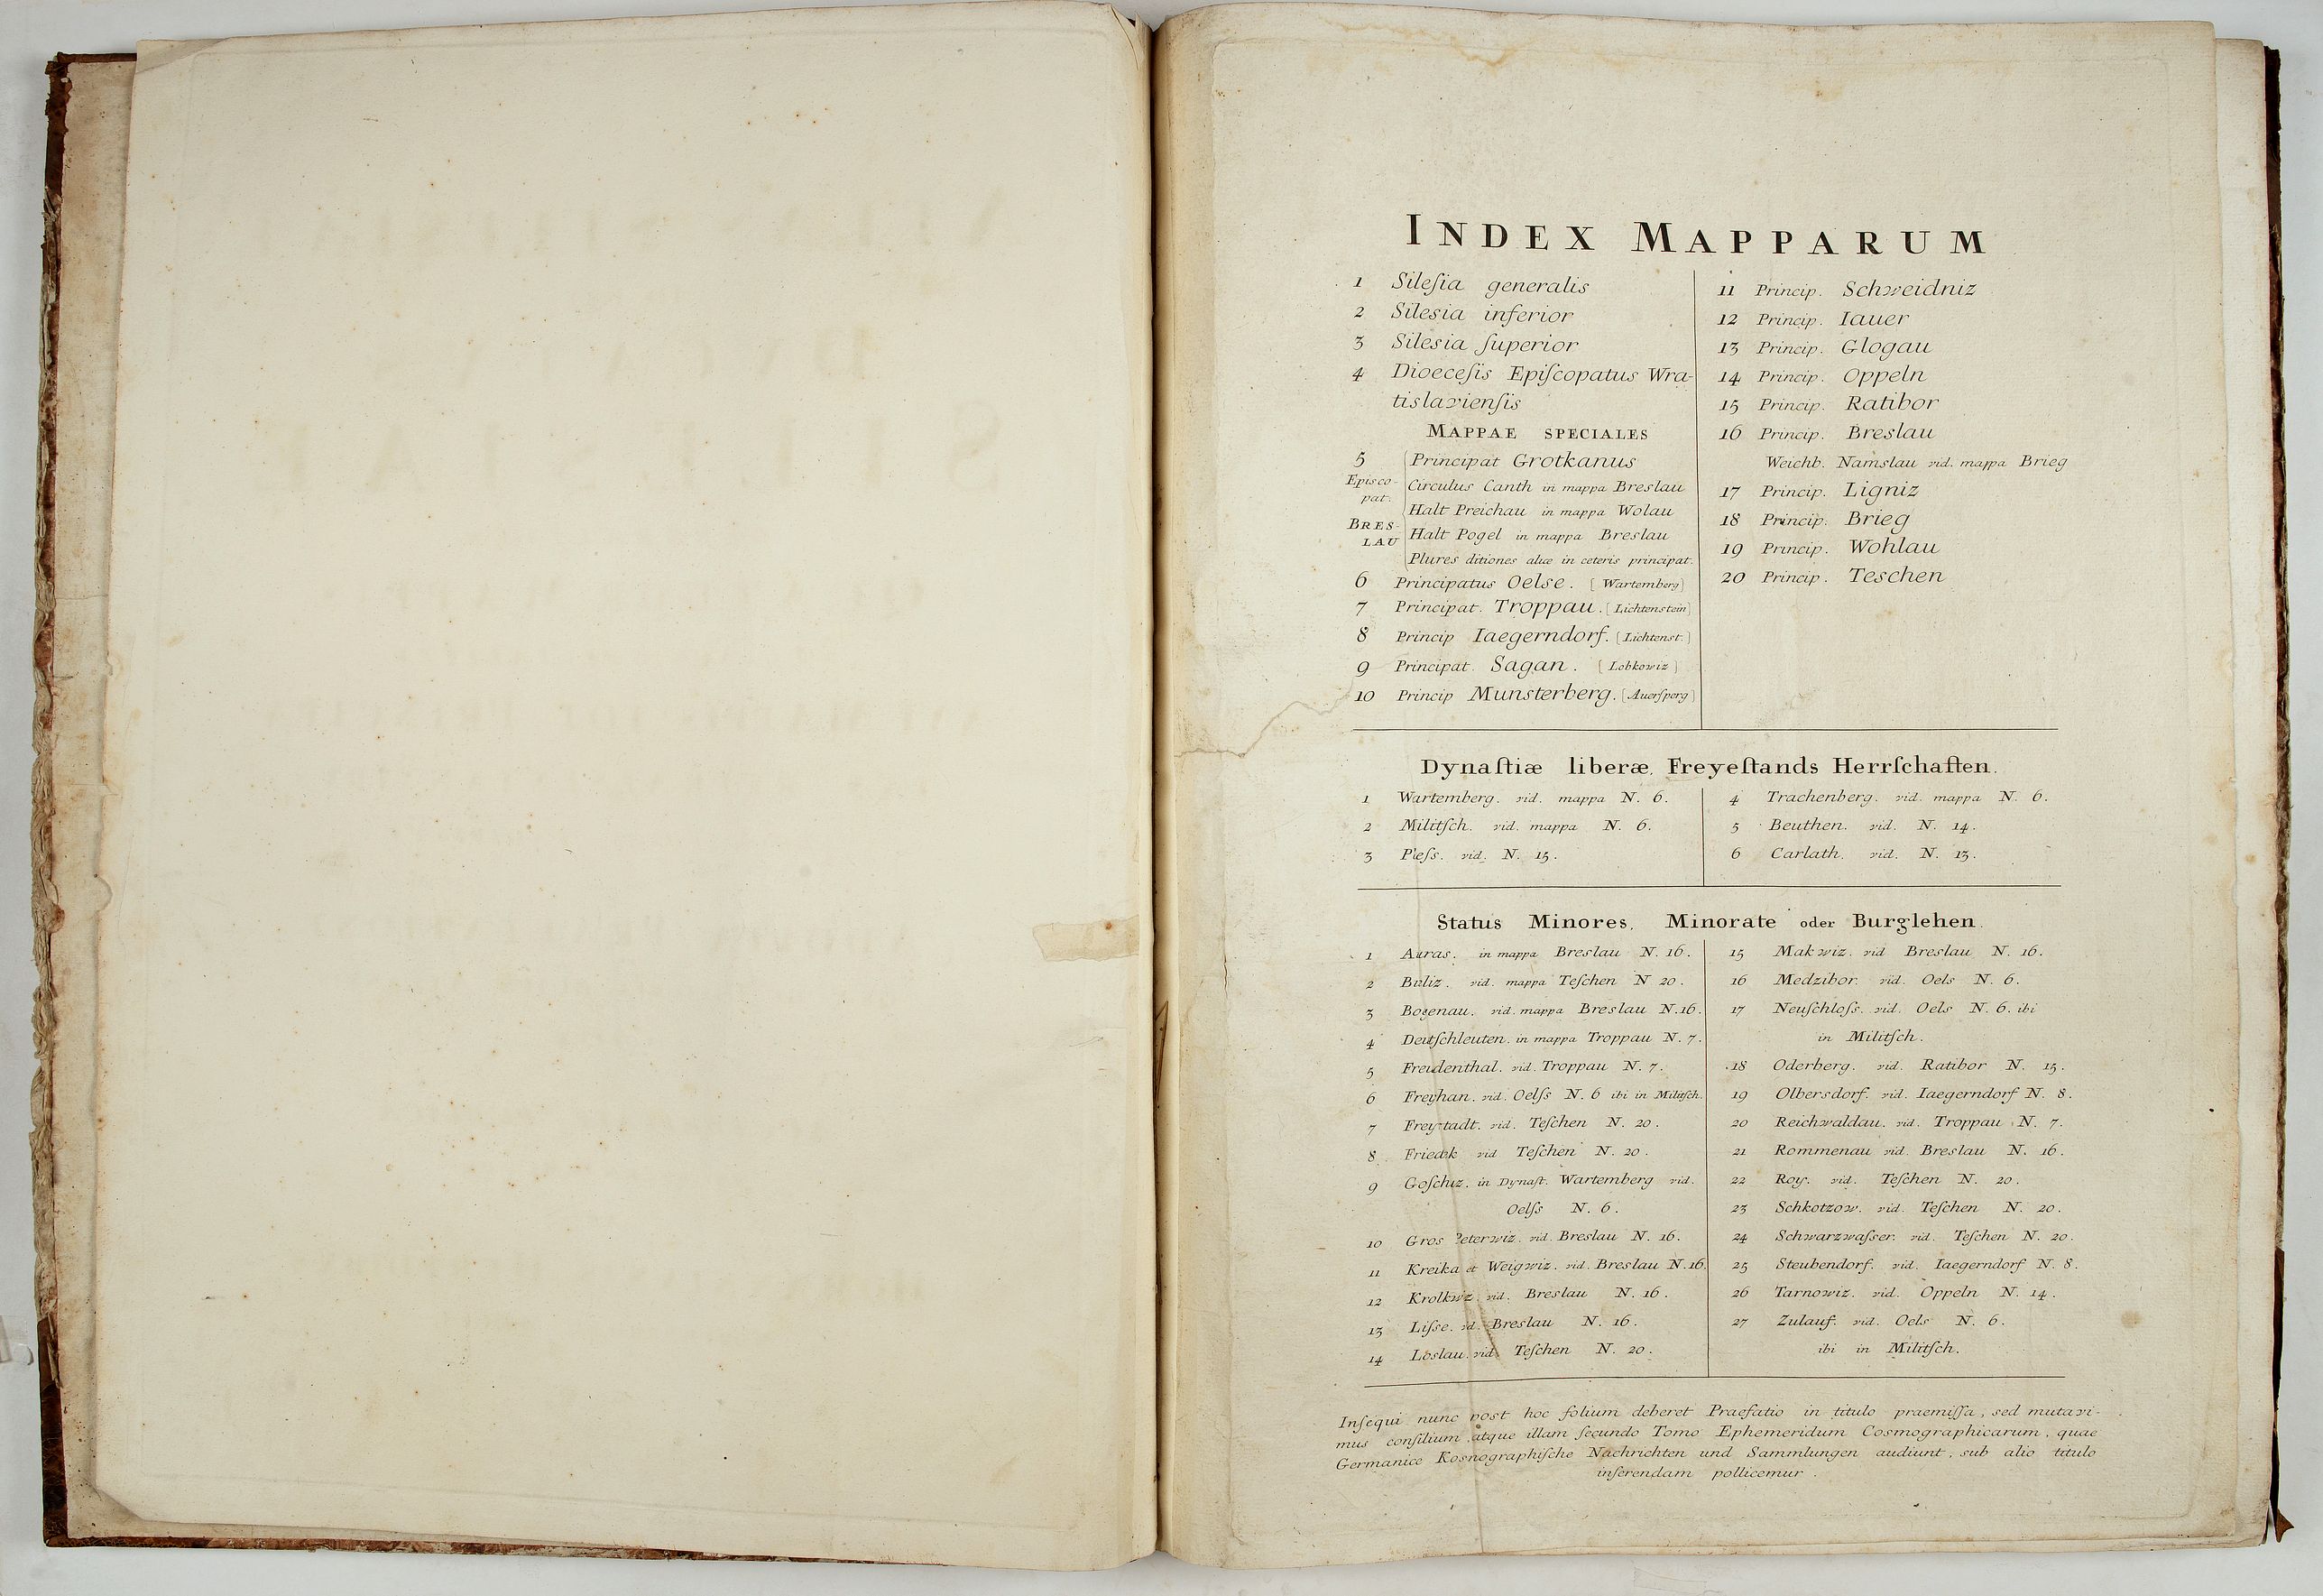 INDEX MAPPARUM
1 Sileſia generalis
2 Silesia inferior
3 Silesia ſuperior
4 Dioeceſis Epiſcopatus Wra-
tislavienſis
MAPPAE SPECIALES
5 Principat Grotkanus
Episco-
pat.
Circulus Canth in mappa Breslau
Halt Preichau in mappa Wolau
BRES-
LAU
Halt Pogel in mappa Breslau
Plures ditiones aliæ in ceteris principat.
6 Principatus Oelse. [Wartemberg]
7 Principat. Troppau. [Lichtenstein]
8 Princip Iaegerndorf. [Lichtenst.]
9 Principat. Sagan. [Lobkowiz]
10 Princip Munsterberg. [Auerſperg]
11 Princip. Schweidniz
12 Princip. Iauer
13 Princip. Glogau
14 Princip. Oppeln
15 Princip. Ratibor
16 Princip. Breslau
Weichb. Namslau vid. mappa Brieg
17 Princip. Ligniz
18 Princip. Brieg
19 Princip. Wohlau
20 Princip. Teschen
Dynaſtiæ liberæ. Freyeſtands Herrſchaften.
1 Wartemberg. vid. mappa N. 6.
2 Militſch. vid. mappa N. 6.
3 Pleſs. vid. N. 15.
4 Trachenberg. vid. mappa N. 6.
5 Beuthen. vid. N. 14.
6 Carlath. vid. N. 13.
Status Minores, Minorate oder Burglehen.
1 Auras. in mappa Breslau N. 16.
2 Biiliz. vid. mappa Teſchen N 20.
3 Bogenau. vid. mappa Breslau N.16.
4 Deutſchleuten. in mappa Troppau N. 7.
5 Freudenthal. vid. Troppau N. 7.
6 Freyhan. vid. Oelſs N. 6 ibi in Militſch.
7 Freystadt. vid. Teſchen N. 20.
8 Friedek vid Teſchen N. 20.
9 Goſchiz. in Dynaſt. Wartemberg vid.
Oelſs N. 6.
10 Gros Peterwiz. vid. Breslau N. 16.
11 Kreika et Weigwiz. vid. Breslau N.16.
12 Krolkwiz. vid. Breslau N. 16.
13 Liſse. vid. Breslau N. 16.
14 Loslau. vid. Teſchen N. 20.
15 Makwiz. vid Breslau N. 16.
16 Medzibor. vid. Oels N. 6.
17 Neuſchloſs. vid. Oels N. 6. ibi
in Militſch.
18 Oderberg. vid. Ratibor N. 15.
19 Olbersdorf. vid. Iaegerndorf N. 8.
20 Reichwaldau. vid. Troppau N. 7.
21 Rommenau vid. Breslau N. 16.
22 Roy. vid. Teſchen N. 20.
23 Schkotzow. vid. Teſchen N. 20.
24 Schwarzwaſser. vid. Teſchen N. 20.
25 Steubendorf. vid. Iaegerndorf N. 8.
26 Tarnowiz. vid. Oppeln N. 14.
27 Zulauf. vid. Oels N. 6.
ibi in Militſch.
Inſequi nunc post hoc folium deberet Praefatio in titulo praemiſſa, sed mutavi-
mus conſilium atque illam ſecundo Tomo Ephemeridum Cosmographicarum, quae
Germanice Kosmographiſche Nachrichten und Sammlungen audiunt, sub alio titulo
inſerendam pollicemur.